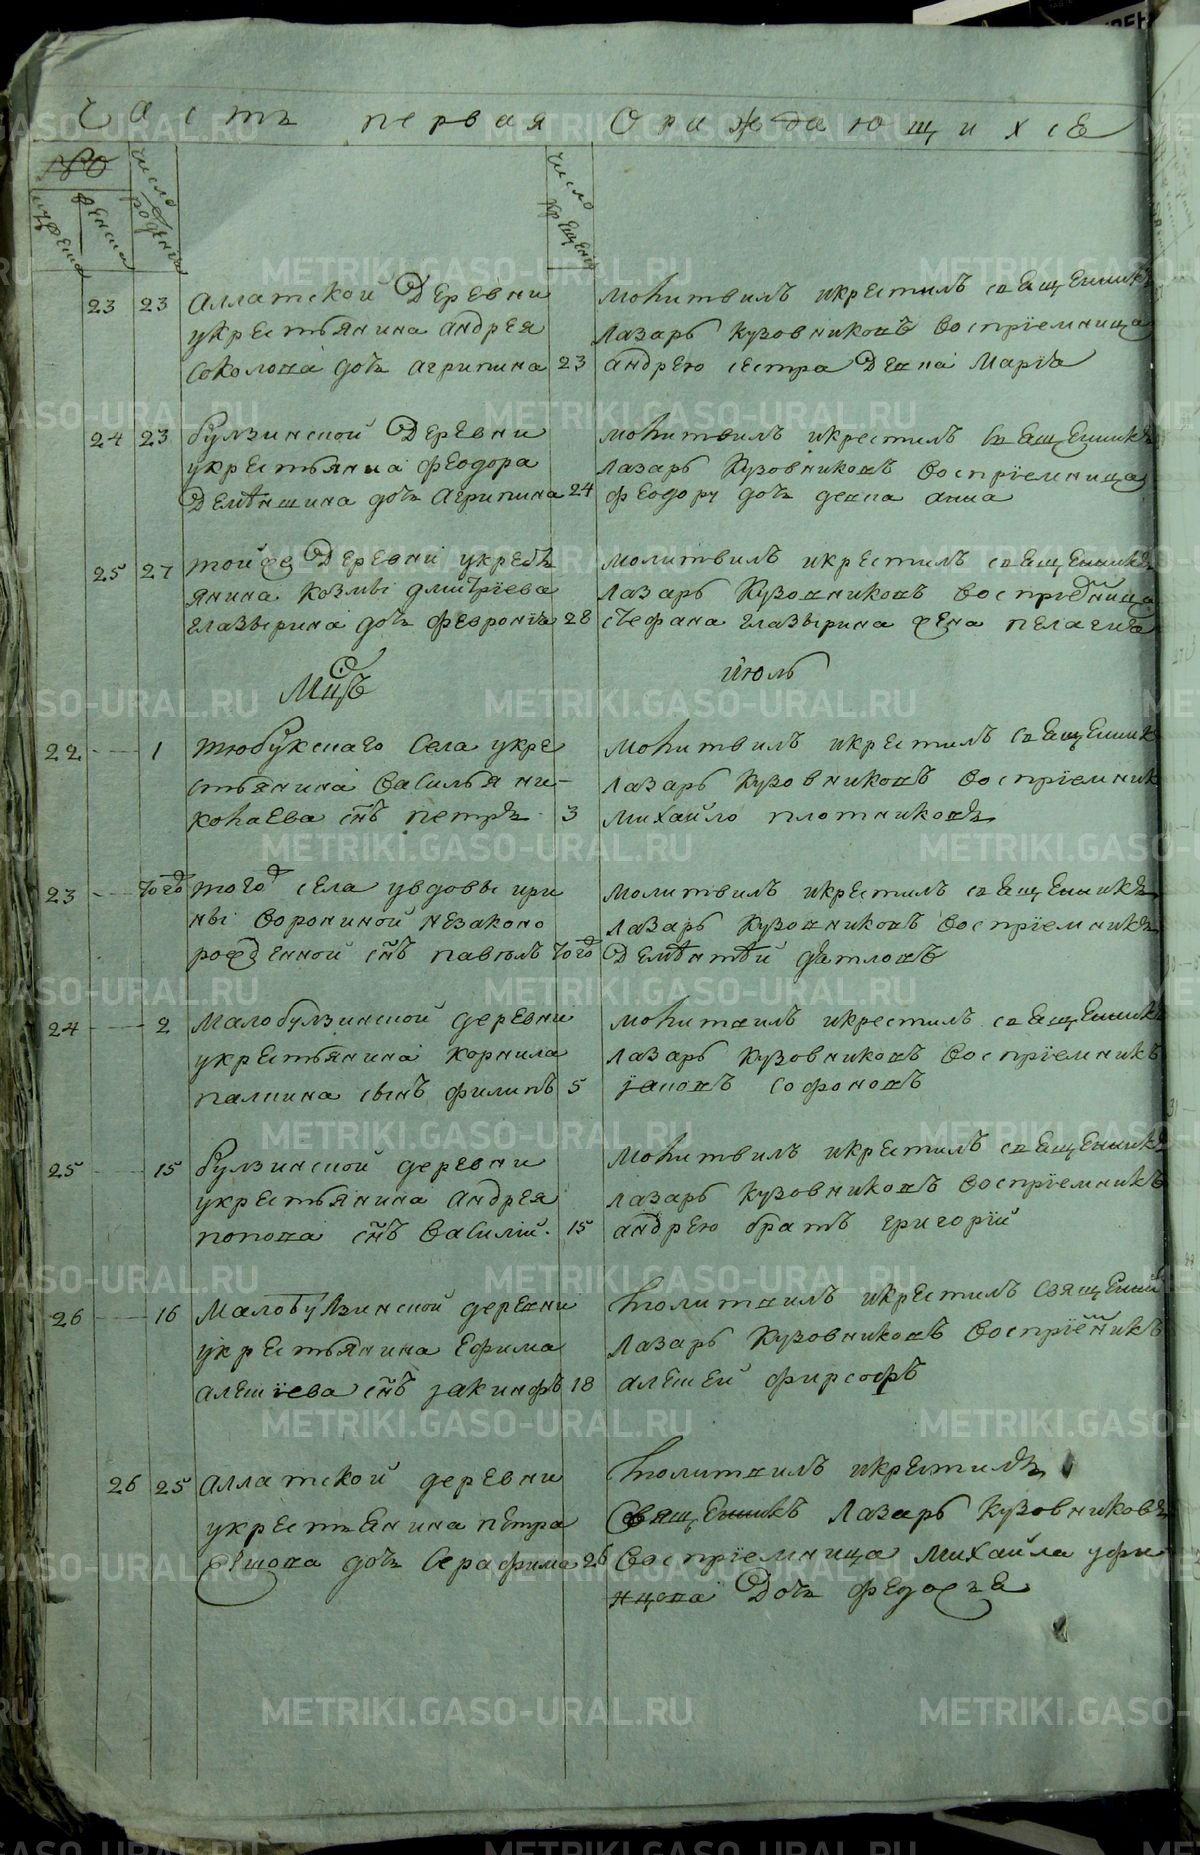 Часть первая Ораждающихся
№
мужеска
женска
число рожденiя
число крещенiя
23 23 Аллатской Деревни
укрестьянина андрея
соколова дочь агрипина 23
молитвилъ икрестилъ священникъ
лазарь Кузовниковъ восприемница
андрею сестра Девка Марiя
24 23 булзинской Деревни
укрестьянина феодора
дочь агрипина 24
молитвилъ икрестилъ священникъ
лазарь Кузовниковъ восприемница
феодору дочь девка анна
25 27 тойже Деревни укресть
янина козмы дмитрiева
глазырина дочь феврония 28
молитвилъ икрестилъ священникъ
лазарь Кузовниковъ восприемница
стефана глазырина жена пелагия
Мцъ июль
22 1 тюбукскаго села укре
стьянина василья ни-
колаева снъ петръ 3
молитвилъ икрестилъ священникъ
лазарь Кузовниковъ восприемникъ
михайло плотниковъ
23 того того села увдовы ири
ны ворониной незаконо
рожденной снъ павелъ того
молитвилъ икрестилъ священникъ
лазарь Кузовниковъ восприемникъ
Дементей дятловъ
24 2 Малобулзинской деревни
укрестьянина корнила
палкина сынъ филипъ 5
молитвилъ икрестилъ священникъ
лазарь Кузовниковъ восприемникъ
яковъ софоновъ
25 15 булзинской деревни
укрестьянина андрея
попова снъ василий 15
молитвилъ икрестилъ священникъ
лазарь Кузовниковъ восприемникъ
андрею братъ григорий
26 16 Малобулзинской деревни
укрестьянина Ефима
снъ iакинфъ 18
молитвилъ икрестилъ священникъ
лазарь Кузовниковъ восприемникъ
алексей фирсофъ
26 25 Аллатской деревни
укрестьянина петра
дочь Серафима 26
молитвилъ икрестилъ
Священникъ Лазарь Кузовниковъ
Восприемница Михайла уфи
нцова Дочь
METRIKI.GASO-URAL.RU